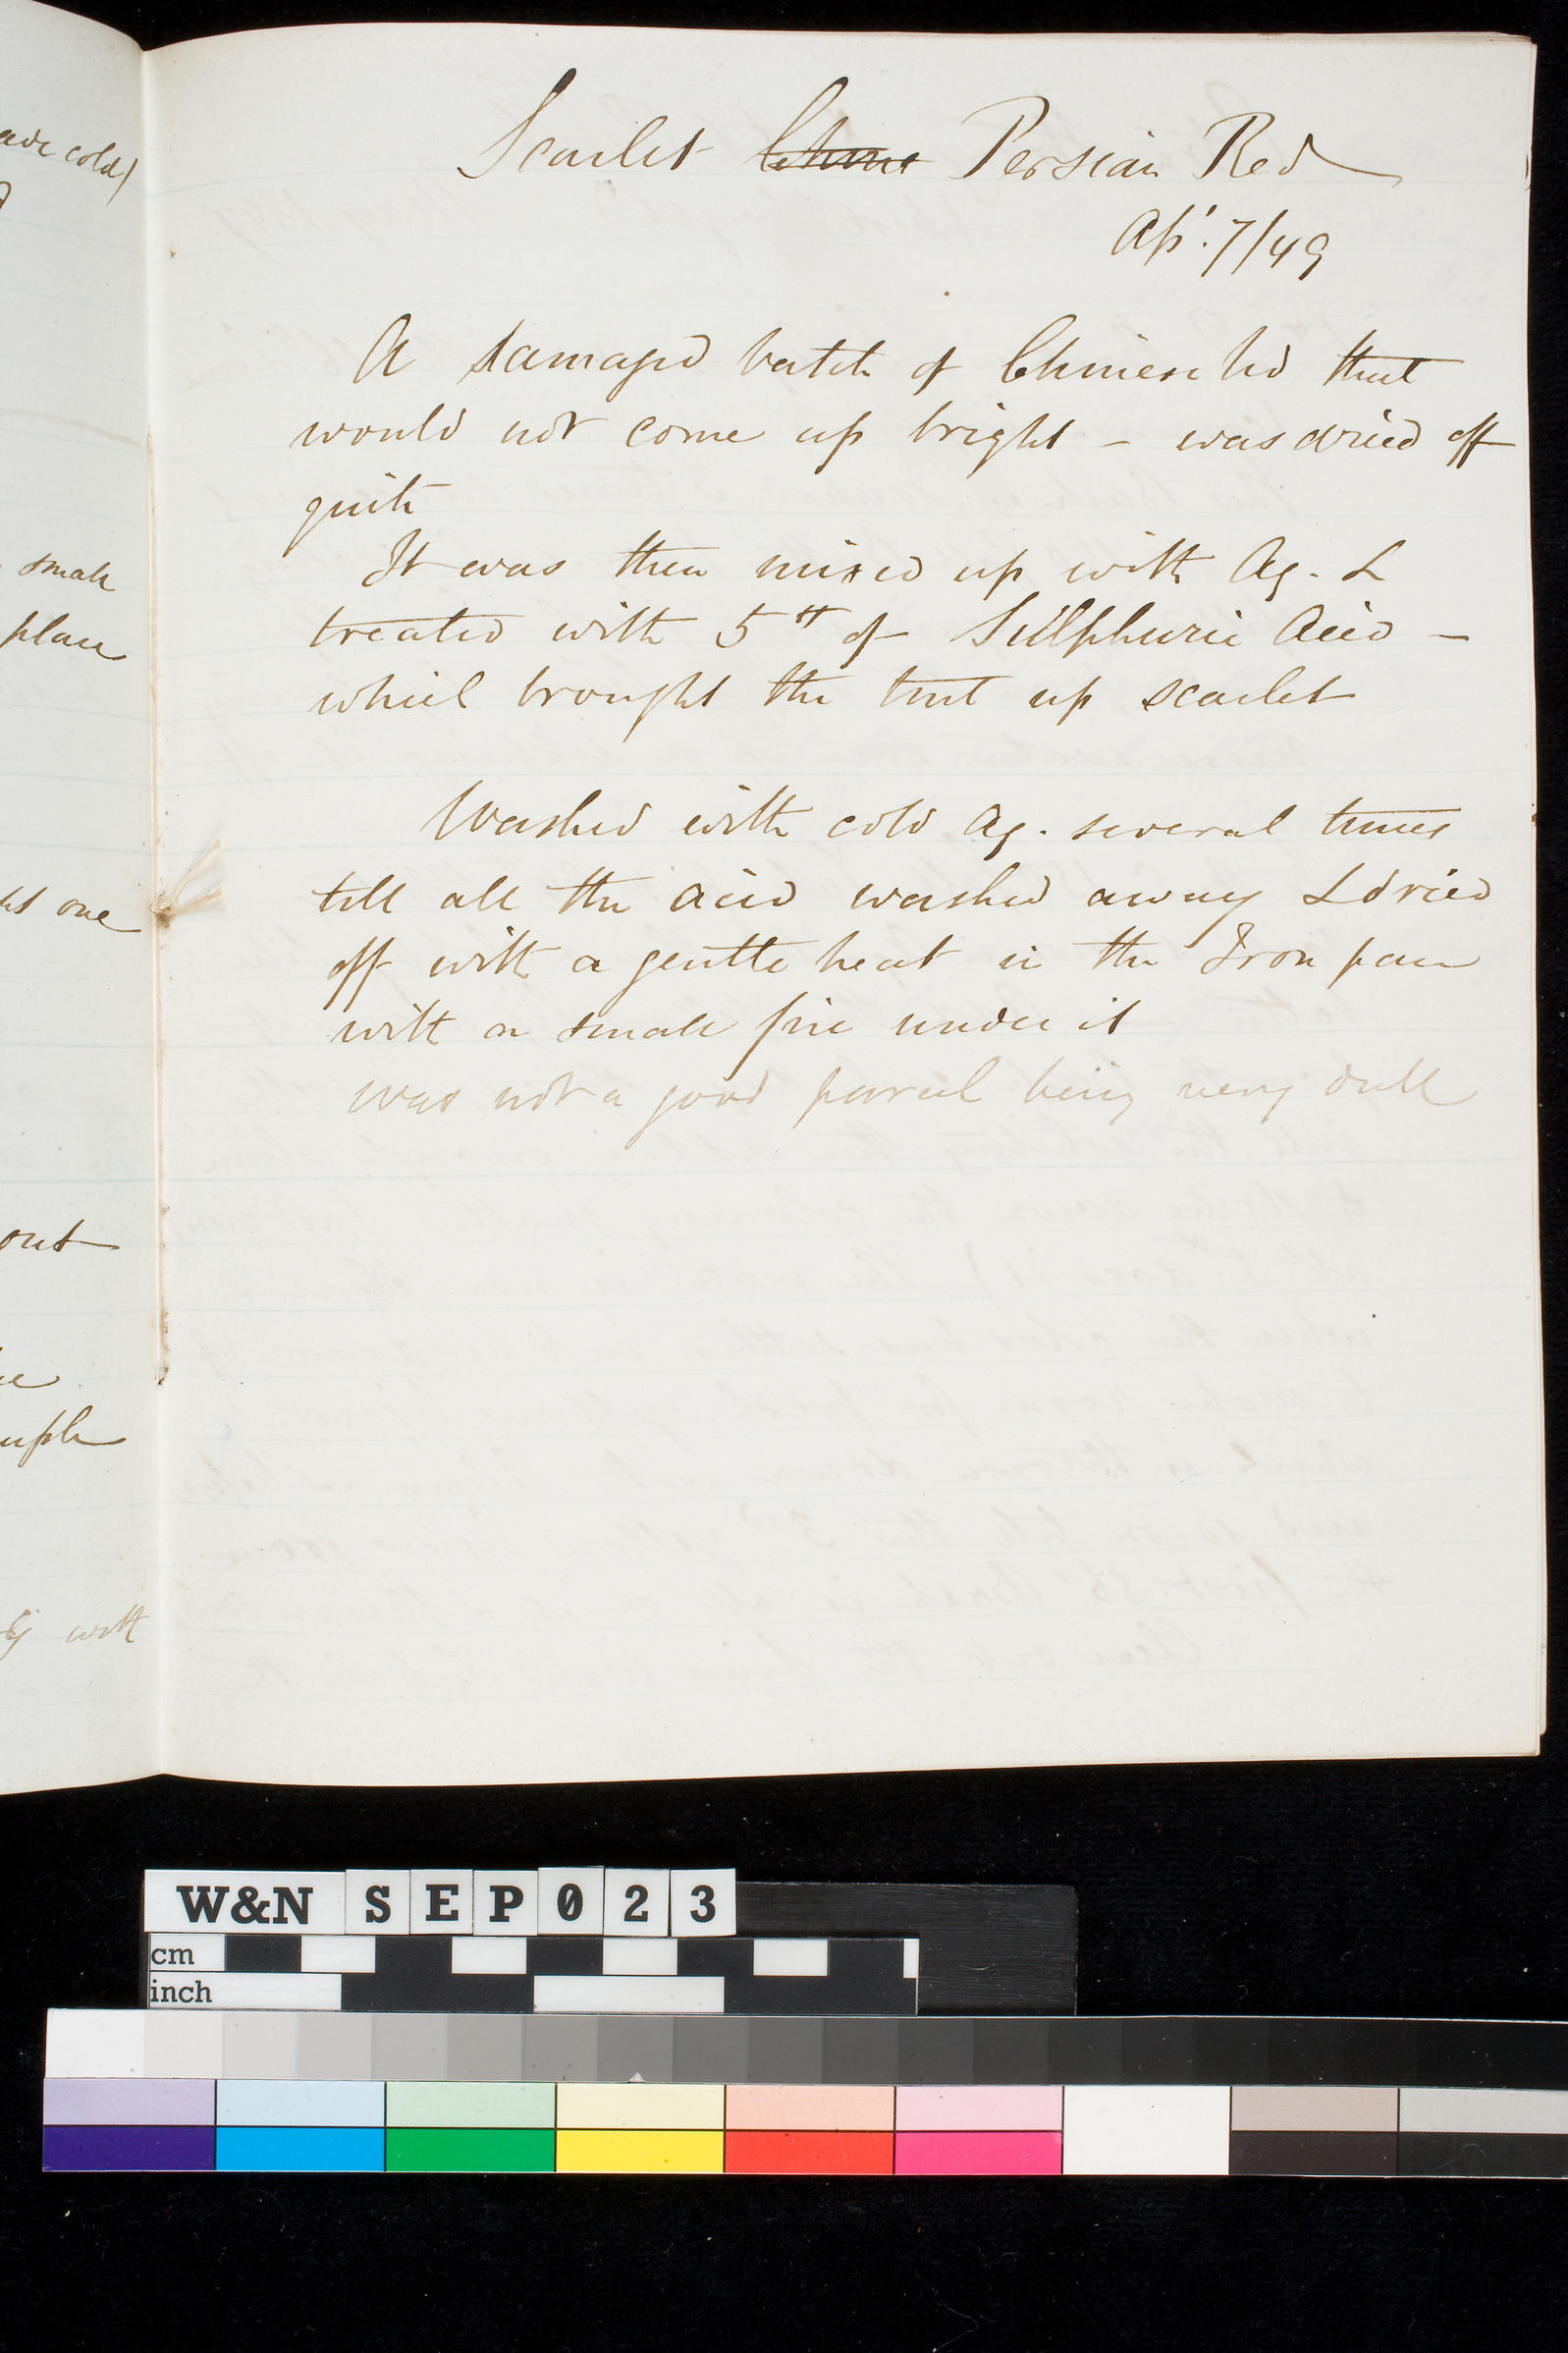 ade cold)
small
place
ht one
out
uple
with
Scarlet ~~Chinese~~ Persian Red
Apl. 7/49
A damaged batch of Chinese Red that
would not come up bright – was dried off
quite
It was then mixed up with Aq. &
treated with 5 lb of Sulphuric Acid –
which brought the tint up scarlet
Washed with cold Aq. several times
till all the acid washed away & dried
off with a gentle heat in the Iron pan
with a small fire under it
was not a good parcel being very dull
W&N SEP023
cm
inch